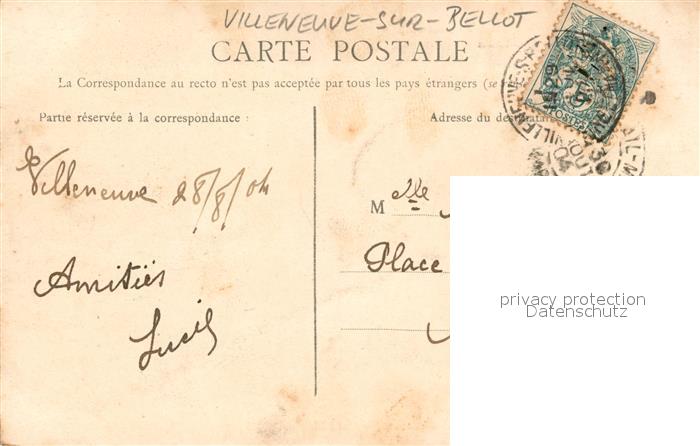 VILLENEUVE-SUR-BELLOT
CARTE POSTALE
La Correspondance au recto n'est pas acceptée par tous les pays étrangers (se
Partie réservée à la correspondance :
Adresse du destinataire
Villeneuve 28/8/04
Melle
Place
Amitiés
Lucile
privacy protection
Datenschutz